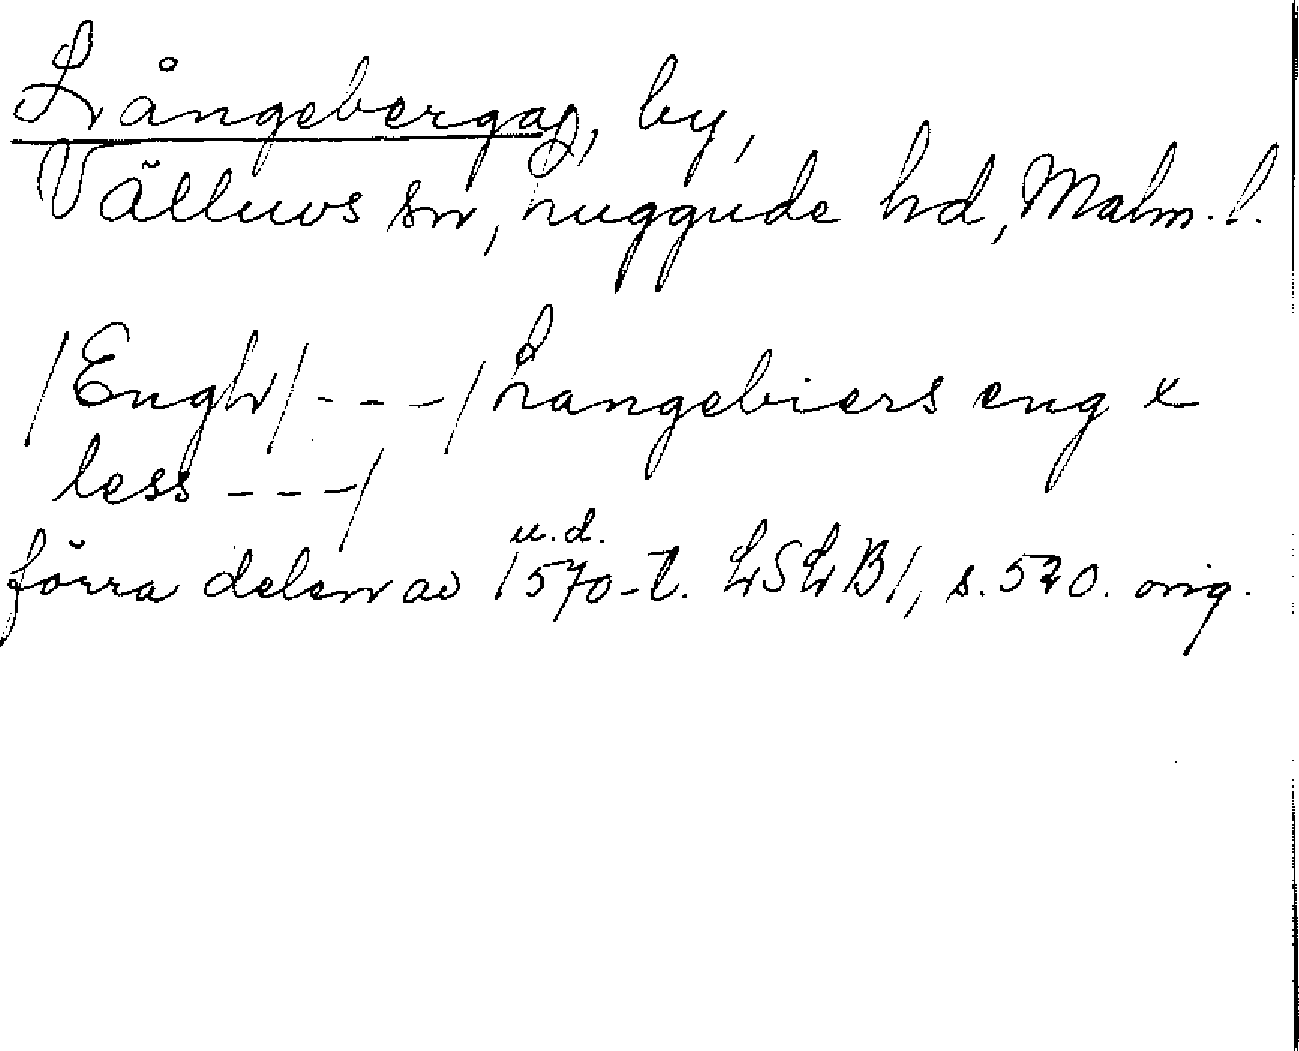 Långeberga, by,
Välluvs sn, Luggude hd, Malm. l.
/Engh/ - - - / Langebiers eng x
less - - - /
u.d.
förra delen av 1570-t. LSLB/, s. 520. orig.